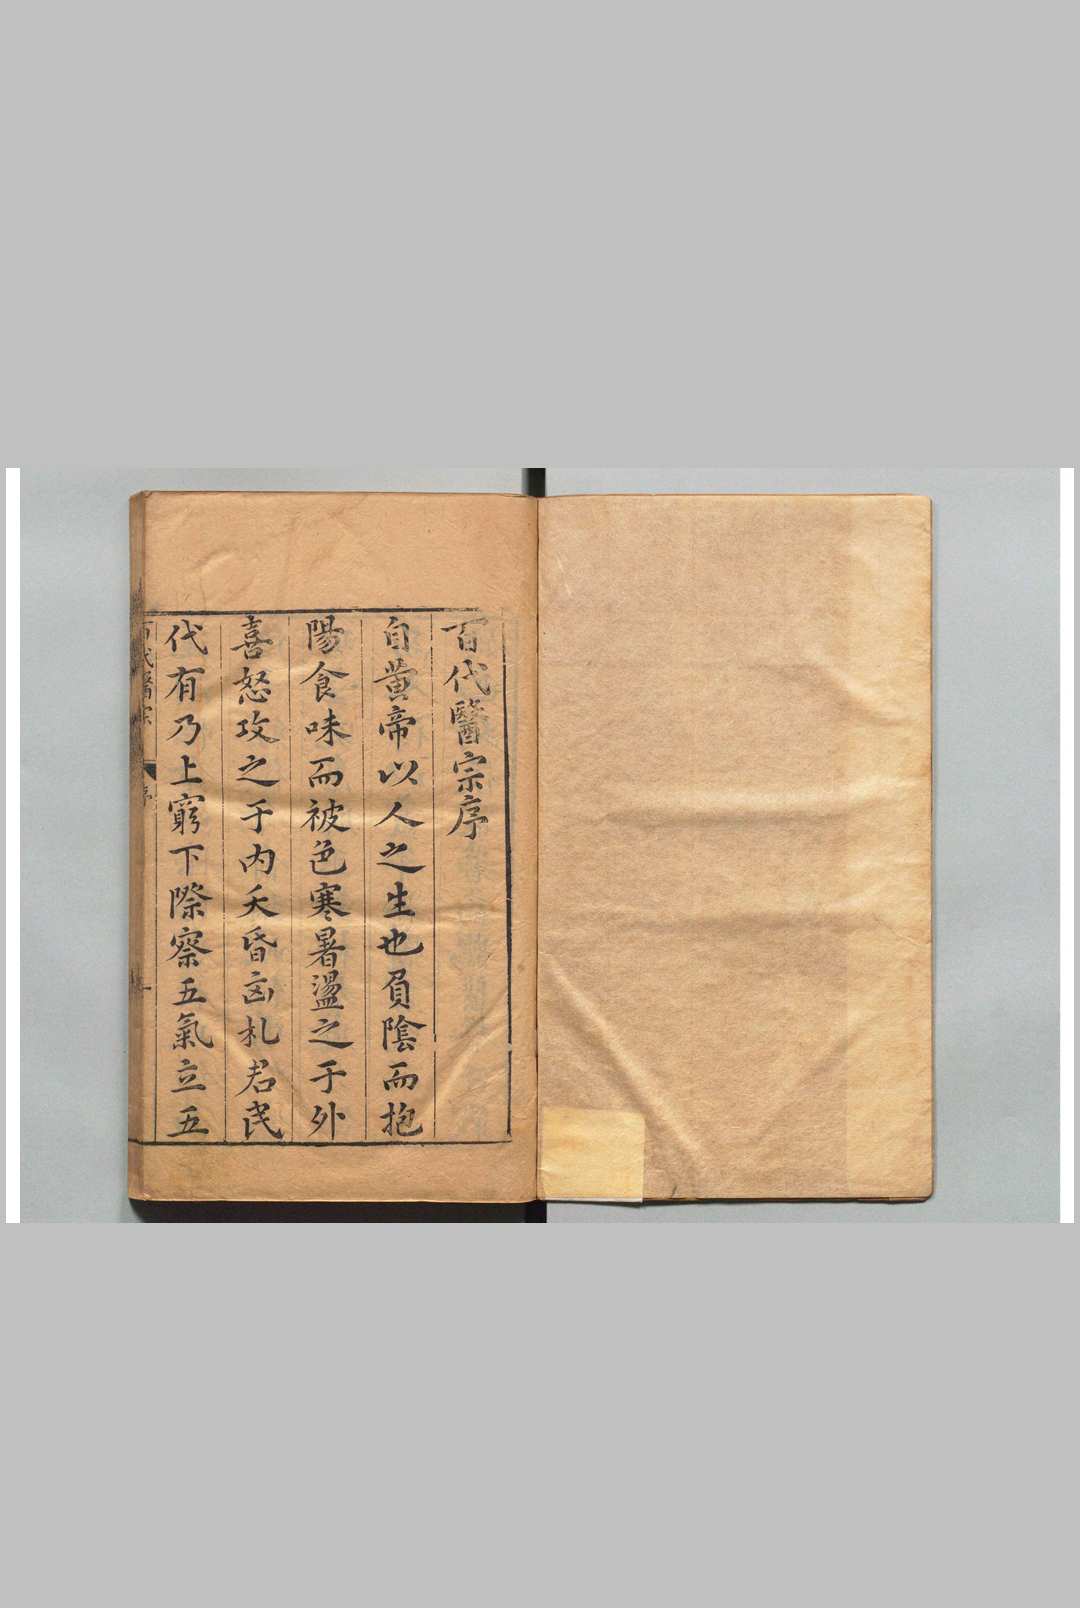 百代醫宗序
自黃帝以人之生也負陰而抱
陽食味而被色寒暑盪之于外
喜怒攻之于内夭昏凶札君民
代有乃上窮下際察五氣立五
百代醫宗
序